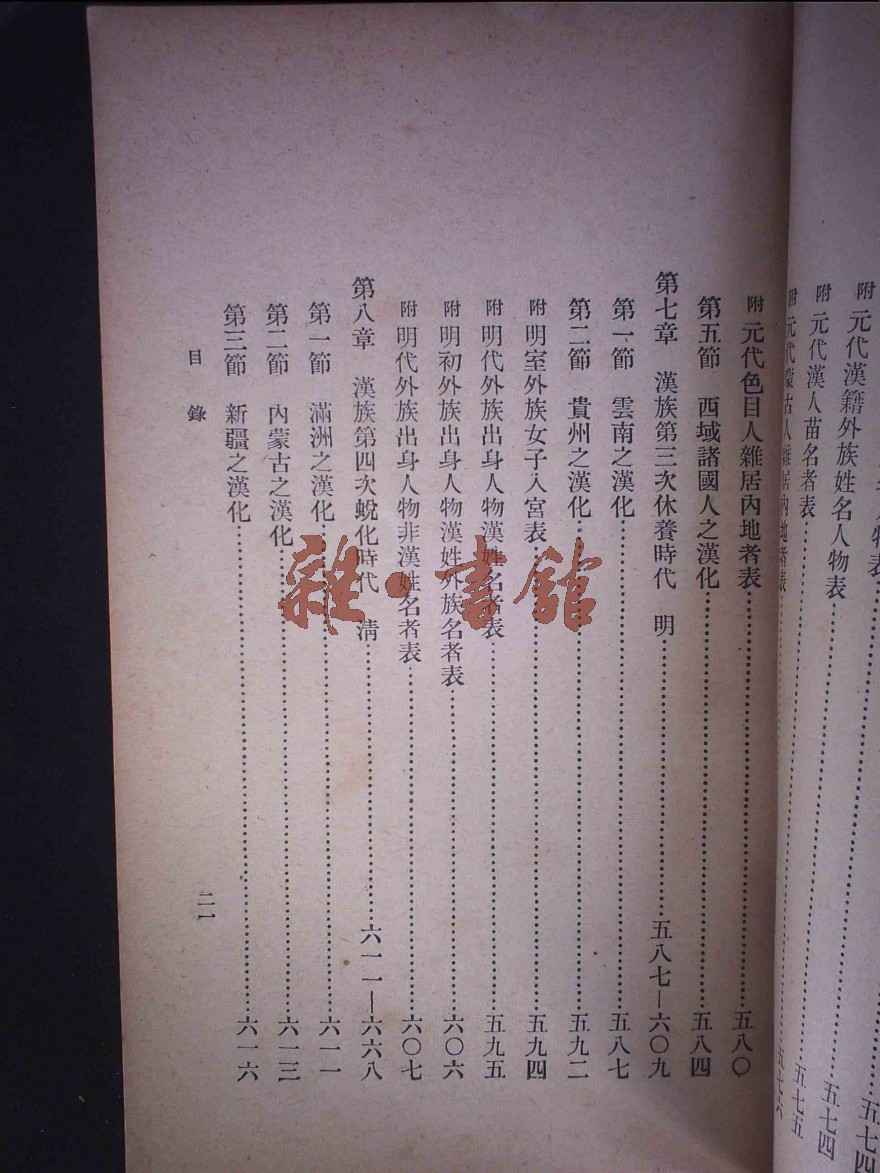 元代漢籍外族姓名人物表……五七四
附 元代漢人苗名者表……五七四
附 元代蒙古人雜居內地者表……五七五
附 元代色目人雜居內地者表……五八〇
第五節 西域諸國人之漢化……五八四
第七章 漢族第三次休養時代 明……五八七—六〇九
第一節 雲南之漢化……五八七
第二節 貴州之漢化……五九二
附 明室外族女子入宮表……五九四
附 明代外族出身人物漢姓名者表……五九五
附 明初外族出身人物漢姓外族名者表……六〇六
附 明代外族出身人物非漢姓名者表……六〇七
第八章 漢族第四次蛻化時代 清……六一一—六六八
第一節 滿洲之漢化……六一一
第二節 內蒙古之漢化……六一三
第三節 新疆之漢化……六一六
目錄
二一
雜·書館